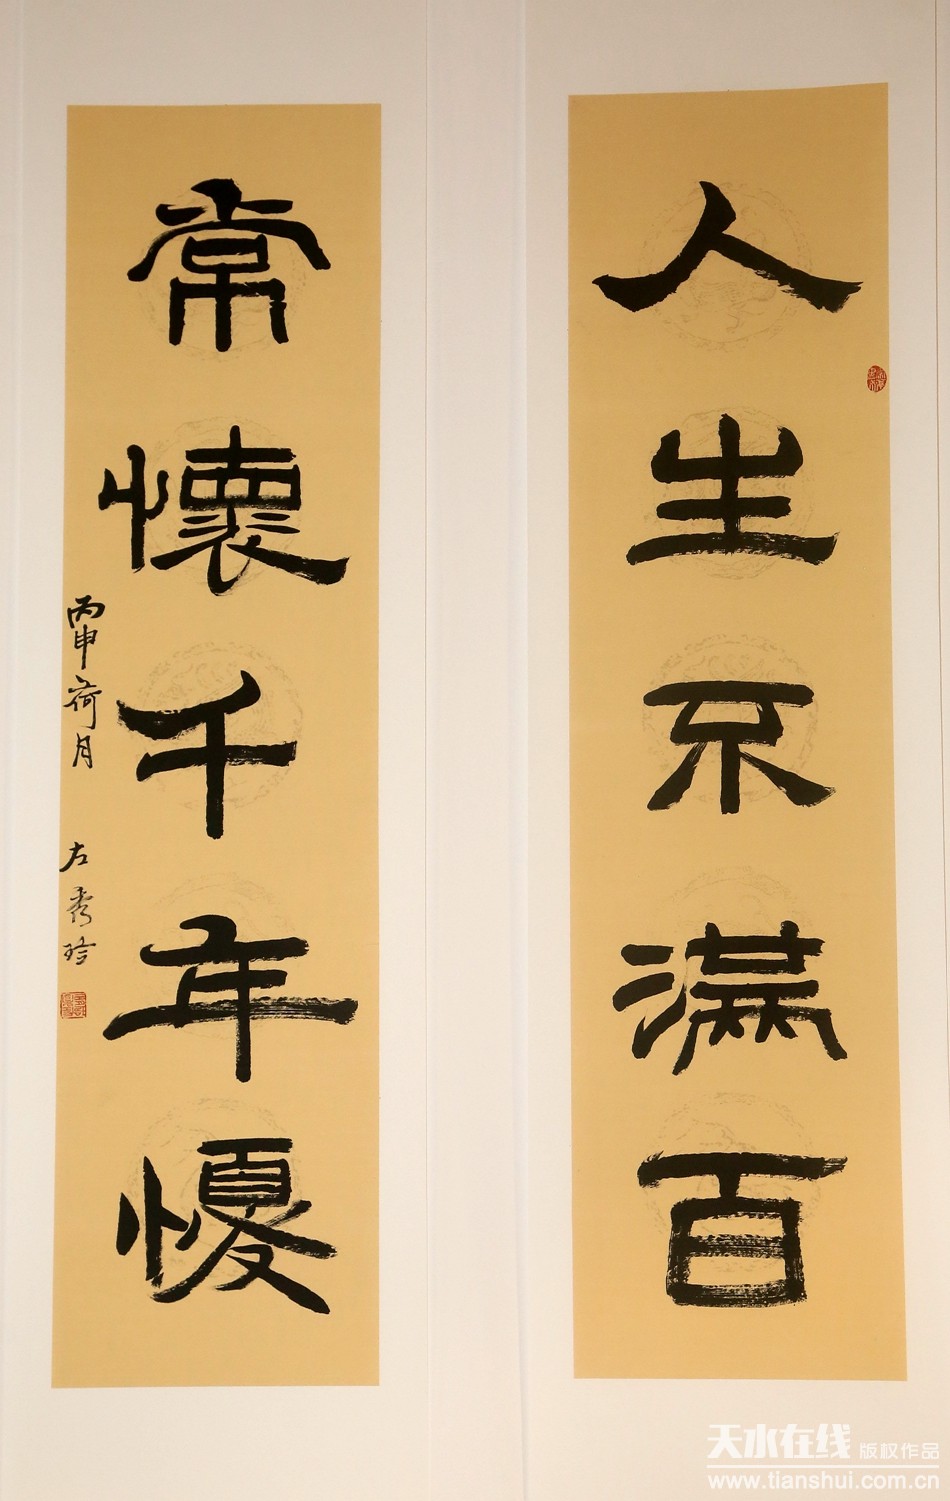 人生不滿百
常懷千年憂
丙申荷月 左秀玲
天水在线 版权作品
www.tianshui.com.cn